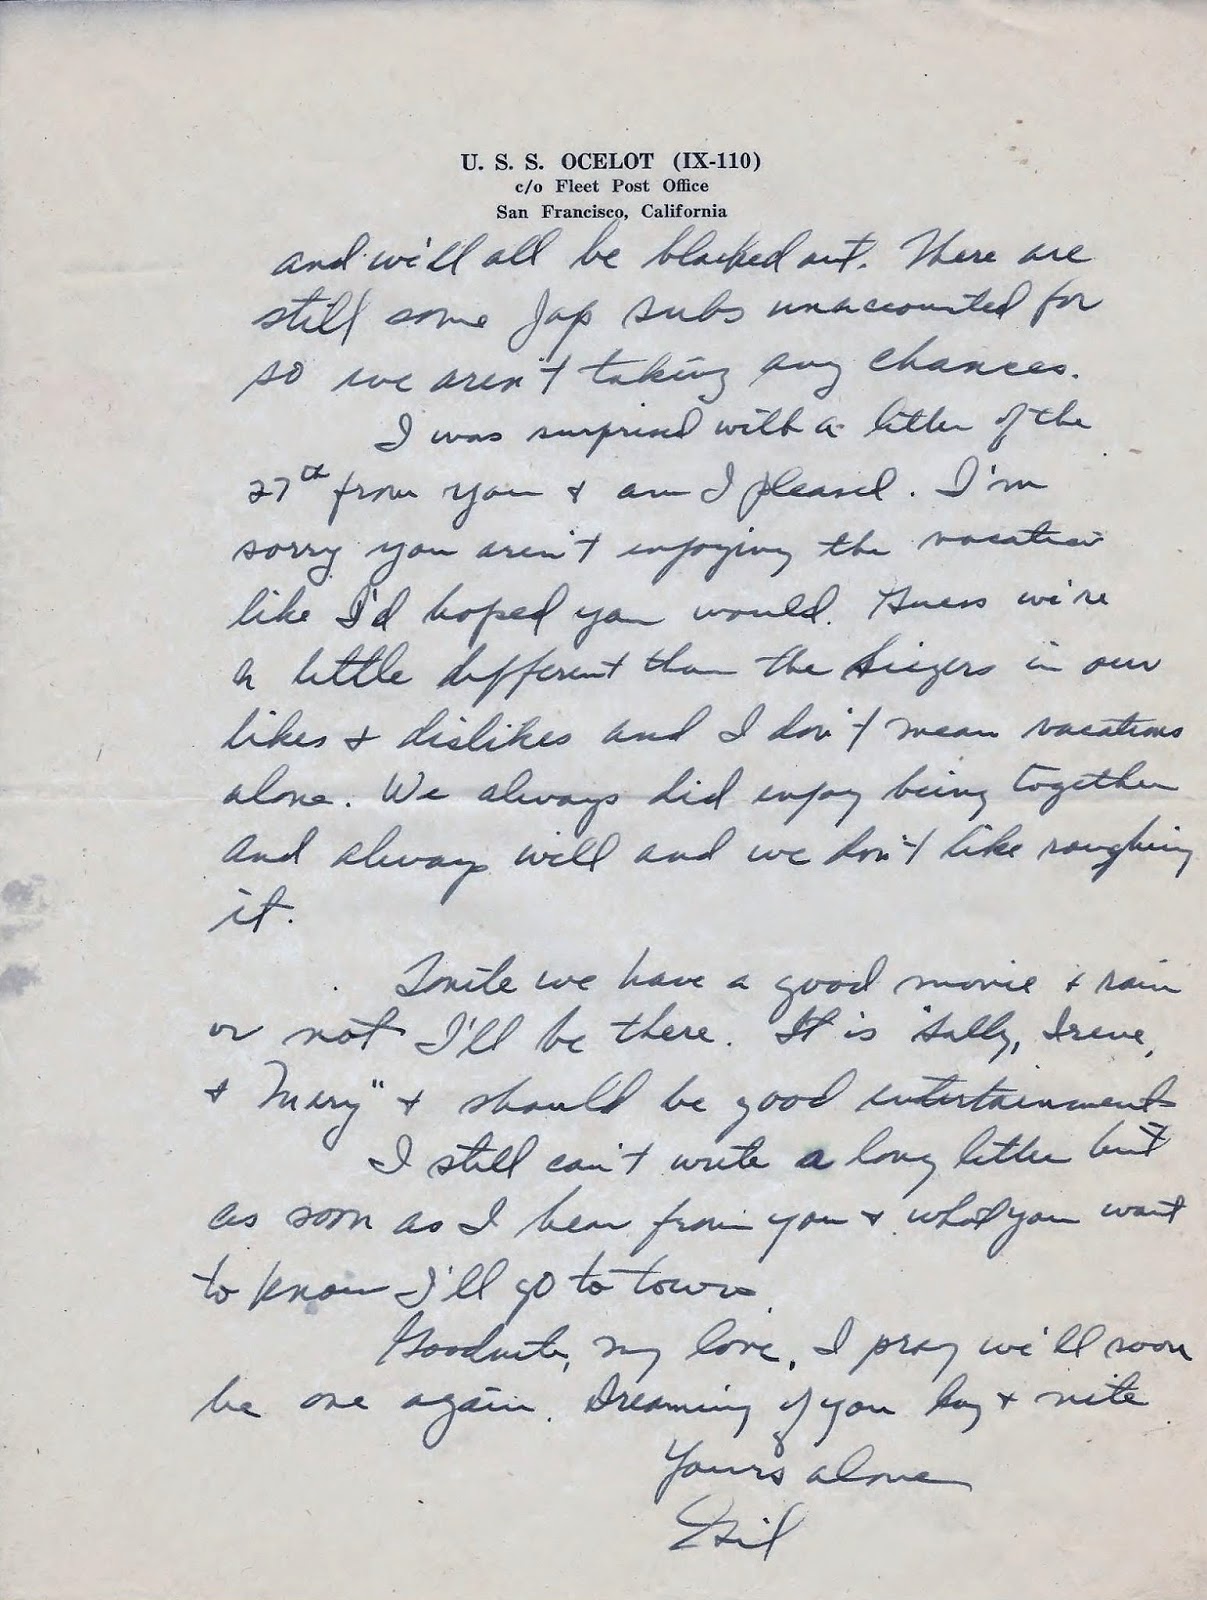 U. S. S. OCELOT (IX-110)
c/o Fleet Post Office
San Francisco, California
and we'll all be blacked out. There are
still some Jap subs unaccounted for
so we aren't taking any chances.
I was surprised with a letter of the
27th from you & am I pleased. I'm
sorry you aren't enjoying the vacation
like I'd hoped you would. Guess we're
a little different than the in our
likes & dislikes and I don't mean vacations
alone. We always did enjoy being together
and always will and we don't like roughing
it.
Tonite we have a good movie & rain
or not I'll be there. It is "Sally, Irene,
& Mary" & should be good entertainment
I still can't write a long letter but
as soon as I hear from you & what you want
to know I'll go to town.
Goodnite, my love, I pray we'll soon
be one again. Dreaming of you day & nite
Yours alone
Gil